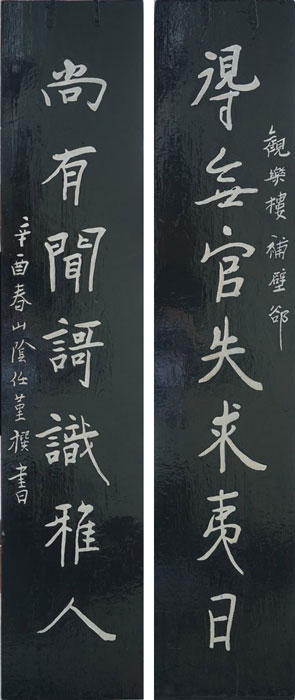 觀樂樓補壁
得無官失求夷日
尚有聞謌識雅人
辛酉春山陰任堇撰書